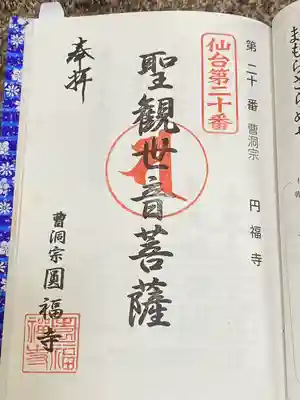 まもらざらめや
第二十番 曹洞宗 円福寺
仙台第二十番
聖観世音菩薩
奉拝
曹洞宗 圓福寺